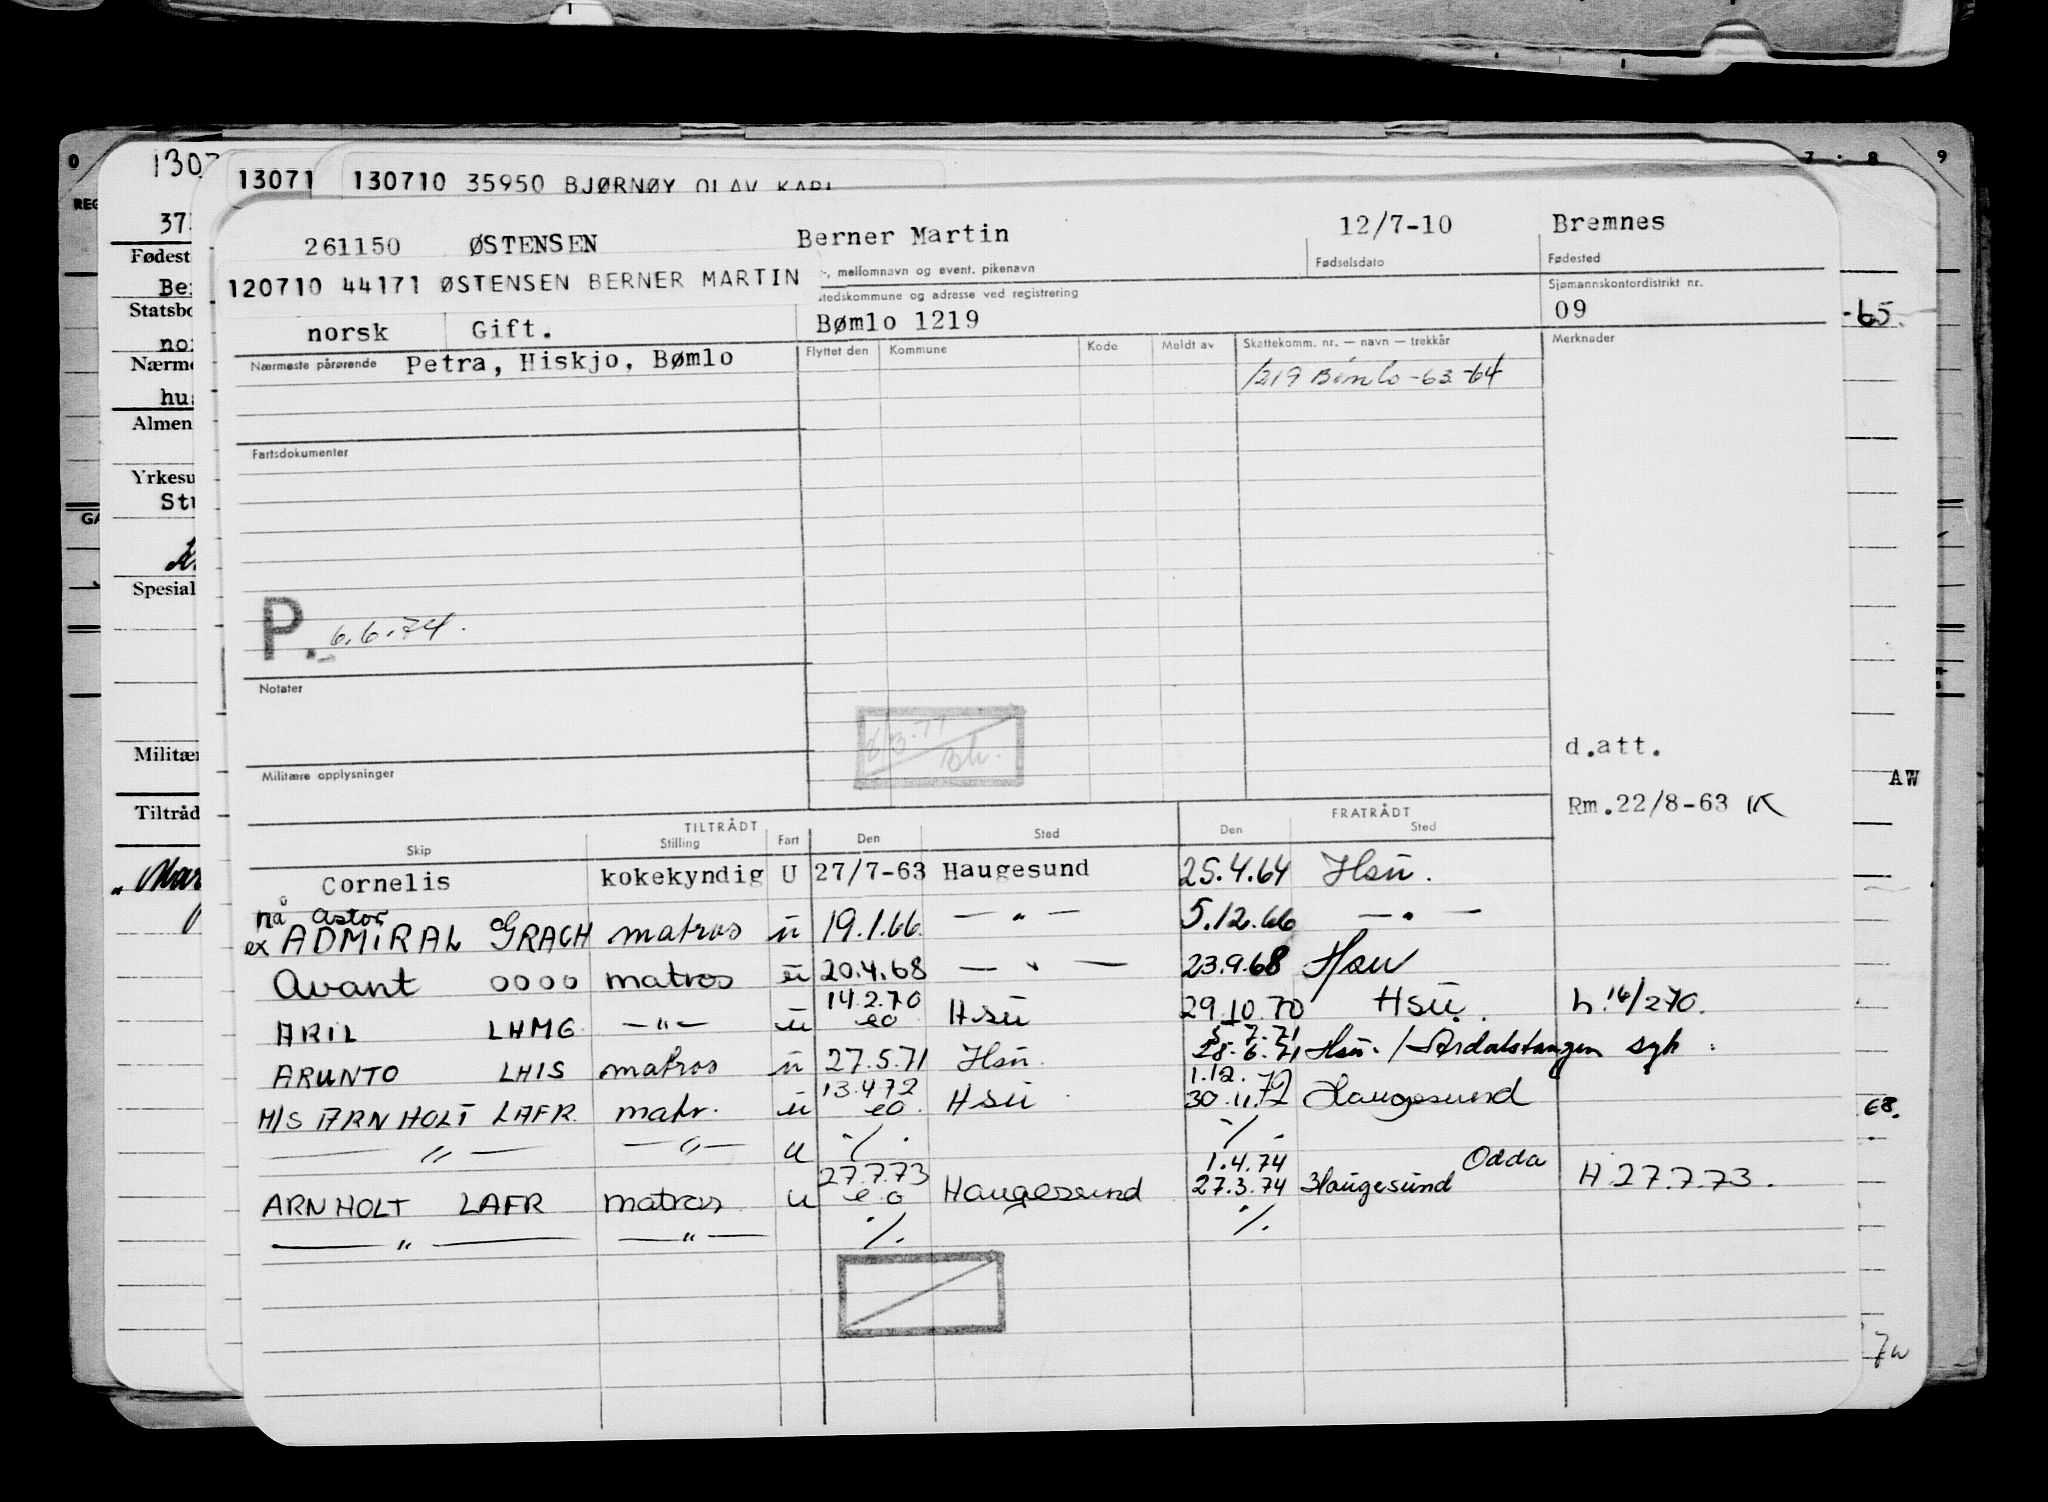 0 7 8 9
1307
13071 130710 35950 BJØRNØY OLAV KARL
REG
37
261150 ØSTENSEN Berner Martin 12/7-10 Bremnes
Fødest mellomnavn og event. pikenavn Fødselsdato Fødested
120710 44171 ØSTENSEN BERNER MARTIN
stedskommune og adresse ved registrering Sjømannskontordistrikt nr.
Be
Statsbo norsk Gift. Bømlo 1219 09 -65.
no
Nærme Nærmeste pårørende Petra, Hiskjo, Bømlo Flyttet den Kommune Kode Meldt av Skattekomm. nr. — navn — trekkår Merknader
1219 Bømlo -63-64
hu
Almen
Fartsdokumenter
Yrkesu
Stu
GA
Spesial
P. 6.6.74.
Notater
Militær
Militære opplysninger
d.att.
AW
Rm.22/8-63 K
Tiltråd
TILTRÅDT FRATRÅDT
Skip Stilling Fart Den Sted Den Sted
Cornelis kokekyndig U 27/7-63 Haugesund 25.4.64 Hsu.
nå Astor
ex ADMIRAL GRACH matros u 19.1.66. — " — 5.12.66 — " —
Avant OOOO matros u 20.4.68 — " — 23.9.68 Hsu
14.2.70
ARIL LHMG — " — u eo Hsu 29.10.70 Hsu. h.16/270.
5.7.71
ARUNTO LHIS matros u 27.5.71 Hsu. 28.6.71 Hsu. / Årdalstangen syk.
13.472 1.12.72
M/S ARNHOLT LAFR. matr. u eo. Hsu 30.11.72 Haugesund
68.
— " — — " — u ./. ./.
27.7.73 1.4.74 Odda
ARNHOLT LAFR matros u eo Haugesund 27.3.74 Haugesund H.27.7.73.
— " — — " — ./. ./.